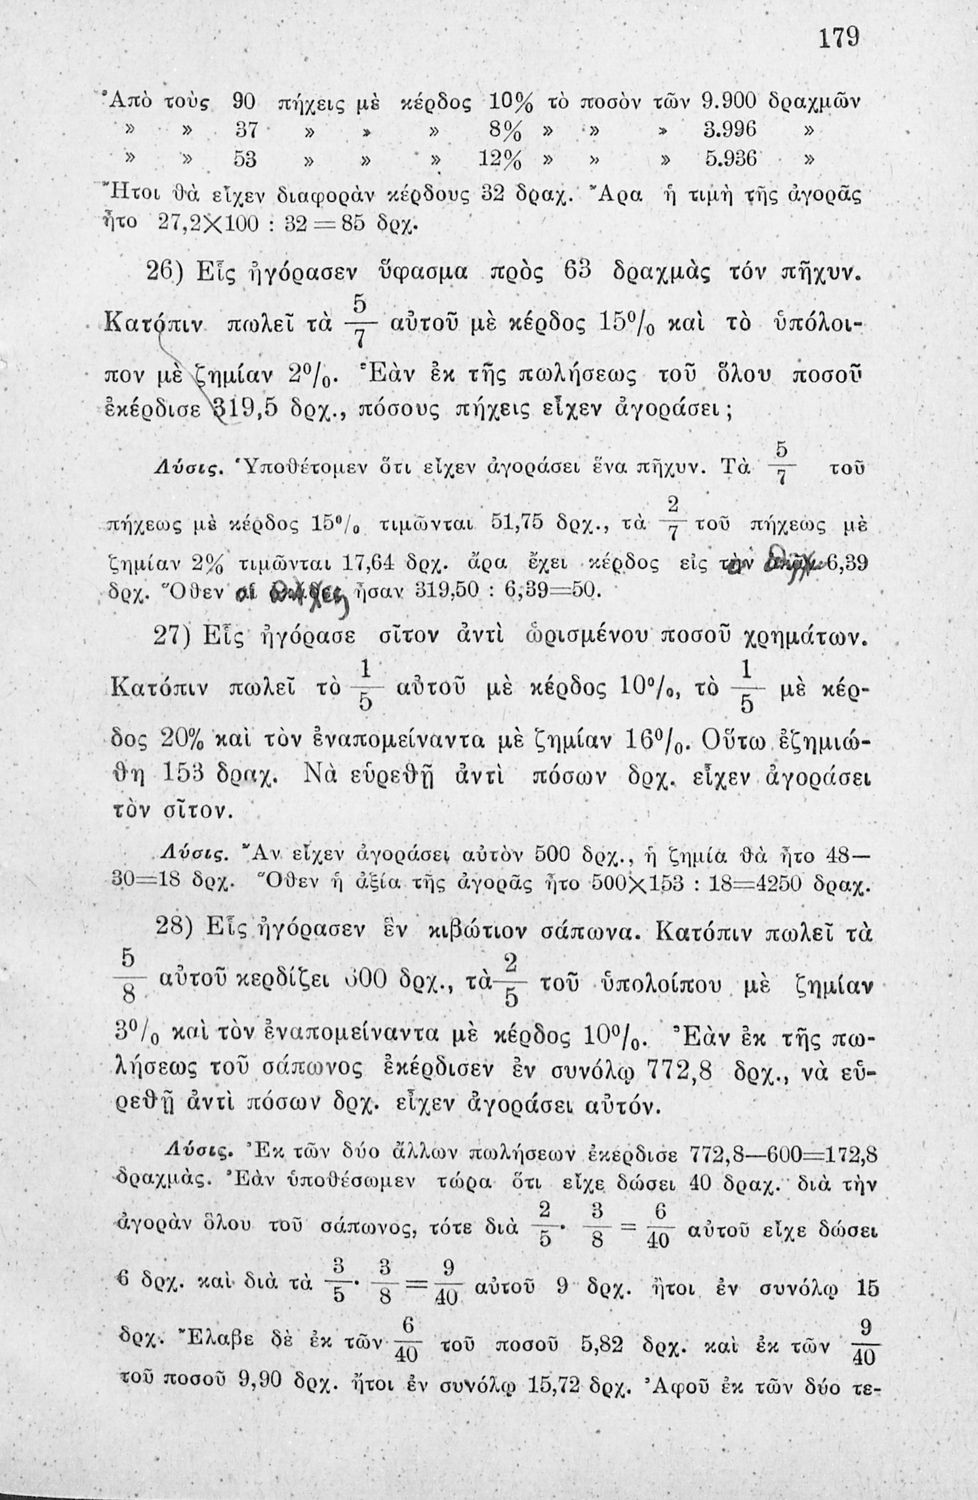 179
Ἀπὸ τοὺς 90 πήχεις μὲ κέρδος 10% τὸ ποσὸν τῶν 9.900 δραχμῶν
» » 37 » » » 8% » » » 3.996 »
» » 53 » » » 12% » » » 5.936 »
Ἤτοι θὰ εἶχεν διαφορὰν κέρδους 32 δραχ. Ἄρα ἡ τιμὴ τῆς ἀγορᾶς
ἦτο 27,2×100 : 32=85 δρχ.
26) Εἷς ἠγόρασεν ὕφασμα πρὸς 63 δραχμὰς τόν πῆχυν.
Κατόπιν πωλεῖ τὰ 5/7 αὐτοῦ μὲ κέρδος 15⁰/₀ καὶ τὸ ὑπόλοι-
πον μὲ ζημίαν 2⁰/₀. Ἐὰν ἐκ τῆς πωλήσεως τοῦ ὅλου ποσοῦ
ἐκέρδισε 319,5 δρχ., πόσους πήχεις εἶχεν ἀγοράσει;
Λύσις. Ὑποθέτομεν ὅτι εἶχεν ἀγοράσει ἕνα πῆχυν. Τὰ 5/7 τοῦ
πήχεως μὲ κέρδος 15⁰/₀ τιμῶνται 51,75 δρχ., τὰ 2/7 τοῦ πήχεως μὲ
ζημίαν 2% τιμῶνται 17,64 δρχ. ἄρα ἔχει κέρδος εἰς 6,39
δρχ. Ὅθεν ἦσαν 319,50 : 6,39=50.
27) Εἷς ἠγόρασε σῖτον ἀντὶ ὡρισμένου ποσοῦ χρημάτων.
Κατόπιν πωλεῖ τὸ 1/5 αὐτοῦ μὲ κέρδος 10⁰/₀, τὸ 1/5 μὲ κέρ-
δος 20% καὶ τὸν ἐναπομείναντα μὲ ζημίαν 16⁰/₀. Οὕτω ἐζημιώ-
θη 153 δραχ. Νὰ εὑρεθῇ ἀντὶ πόσων δρχ. εἶχεν ἀγοράσει
τὸν σῖτον.
Λύσις. Ἂν εἶχεν ἀγοράσει αὐτὸν 500 δρχ., ἡ ζημία θὰ ἦτο 48—
30=18 δρχ. Ὅθεν ἡ ἀξία τῆς ἀγορᾶς ἦτο 500×153 : 18=4250 δραχ.
28) Εἷς ἠγόρασεν ἓν κιβώτιον σάπωνα. Κατόπιν πωλεῖ τὰ
5/8 αὐτοῦ κερδίζει 600 δρχ., τὰ 2/5 τοῦ ὑπολοίπου μὲ ζημίαν
3⁰/₀ καὶ τὸν ἐναπομείναντα μὲ κέρδος 10⁰/₀. Ἐὰν ἐκ τῆς πω-
λήσεως τοῦ σάπωνος ἐκέρδισεν ἐν συνόλῳ 772,8 δρχ., νὰ εὑ-
ρεθῇ ἀντὶ πόσων δρχ. εἶχεν ἀγοράσει αὐτόν.
Λύσις. Ἐκ τῶν δύο ἄλλων πωλήσεων ἐκέρδισε 772,8—600=172,8
δραχμὰς. Ἐὰν ὑποθέσωμεν τώρα ὅτι εἶχε δώσει 40 δραχ. διὰ τὴν
ἀγορὰν ὅλου τοῦ σάπωνος, τότε διὰ 2/5 · 3/8 = 6/40 αὐτοῦ εἶχε δώσει
6 δρχ. καὶ διὰ τὰ 3/5 · 3/8 = 9/40 αὐτοῦ 9 δρχ. ἤτοι ἐν συνόλῳ 15
δρχ. Ἔλαβε δὲ ἐκ τῶν 6/40 τοῦ ποσοῦ 5,82 δρχ. καὶ ἐκ τῶν 9/40
τοῦ ποσοῦ 9,90 δρχ. ἤτοι ἐν συνόλῳ 15,72 δρχ. Ἀφοῦ ἐκ τῶν δύο τε-